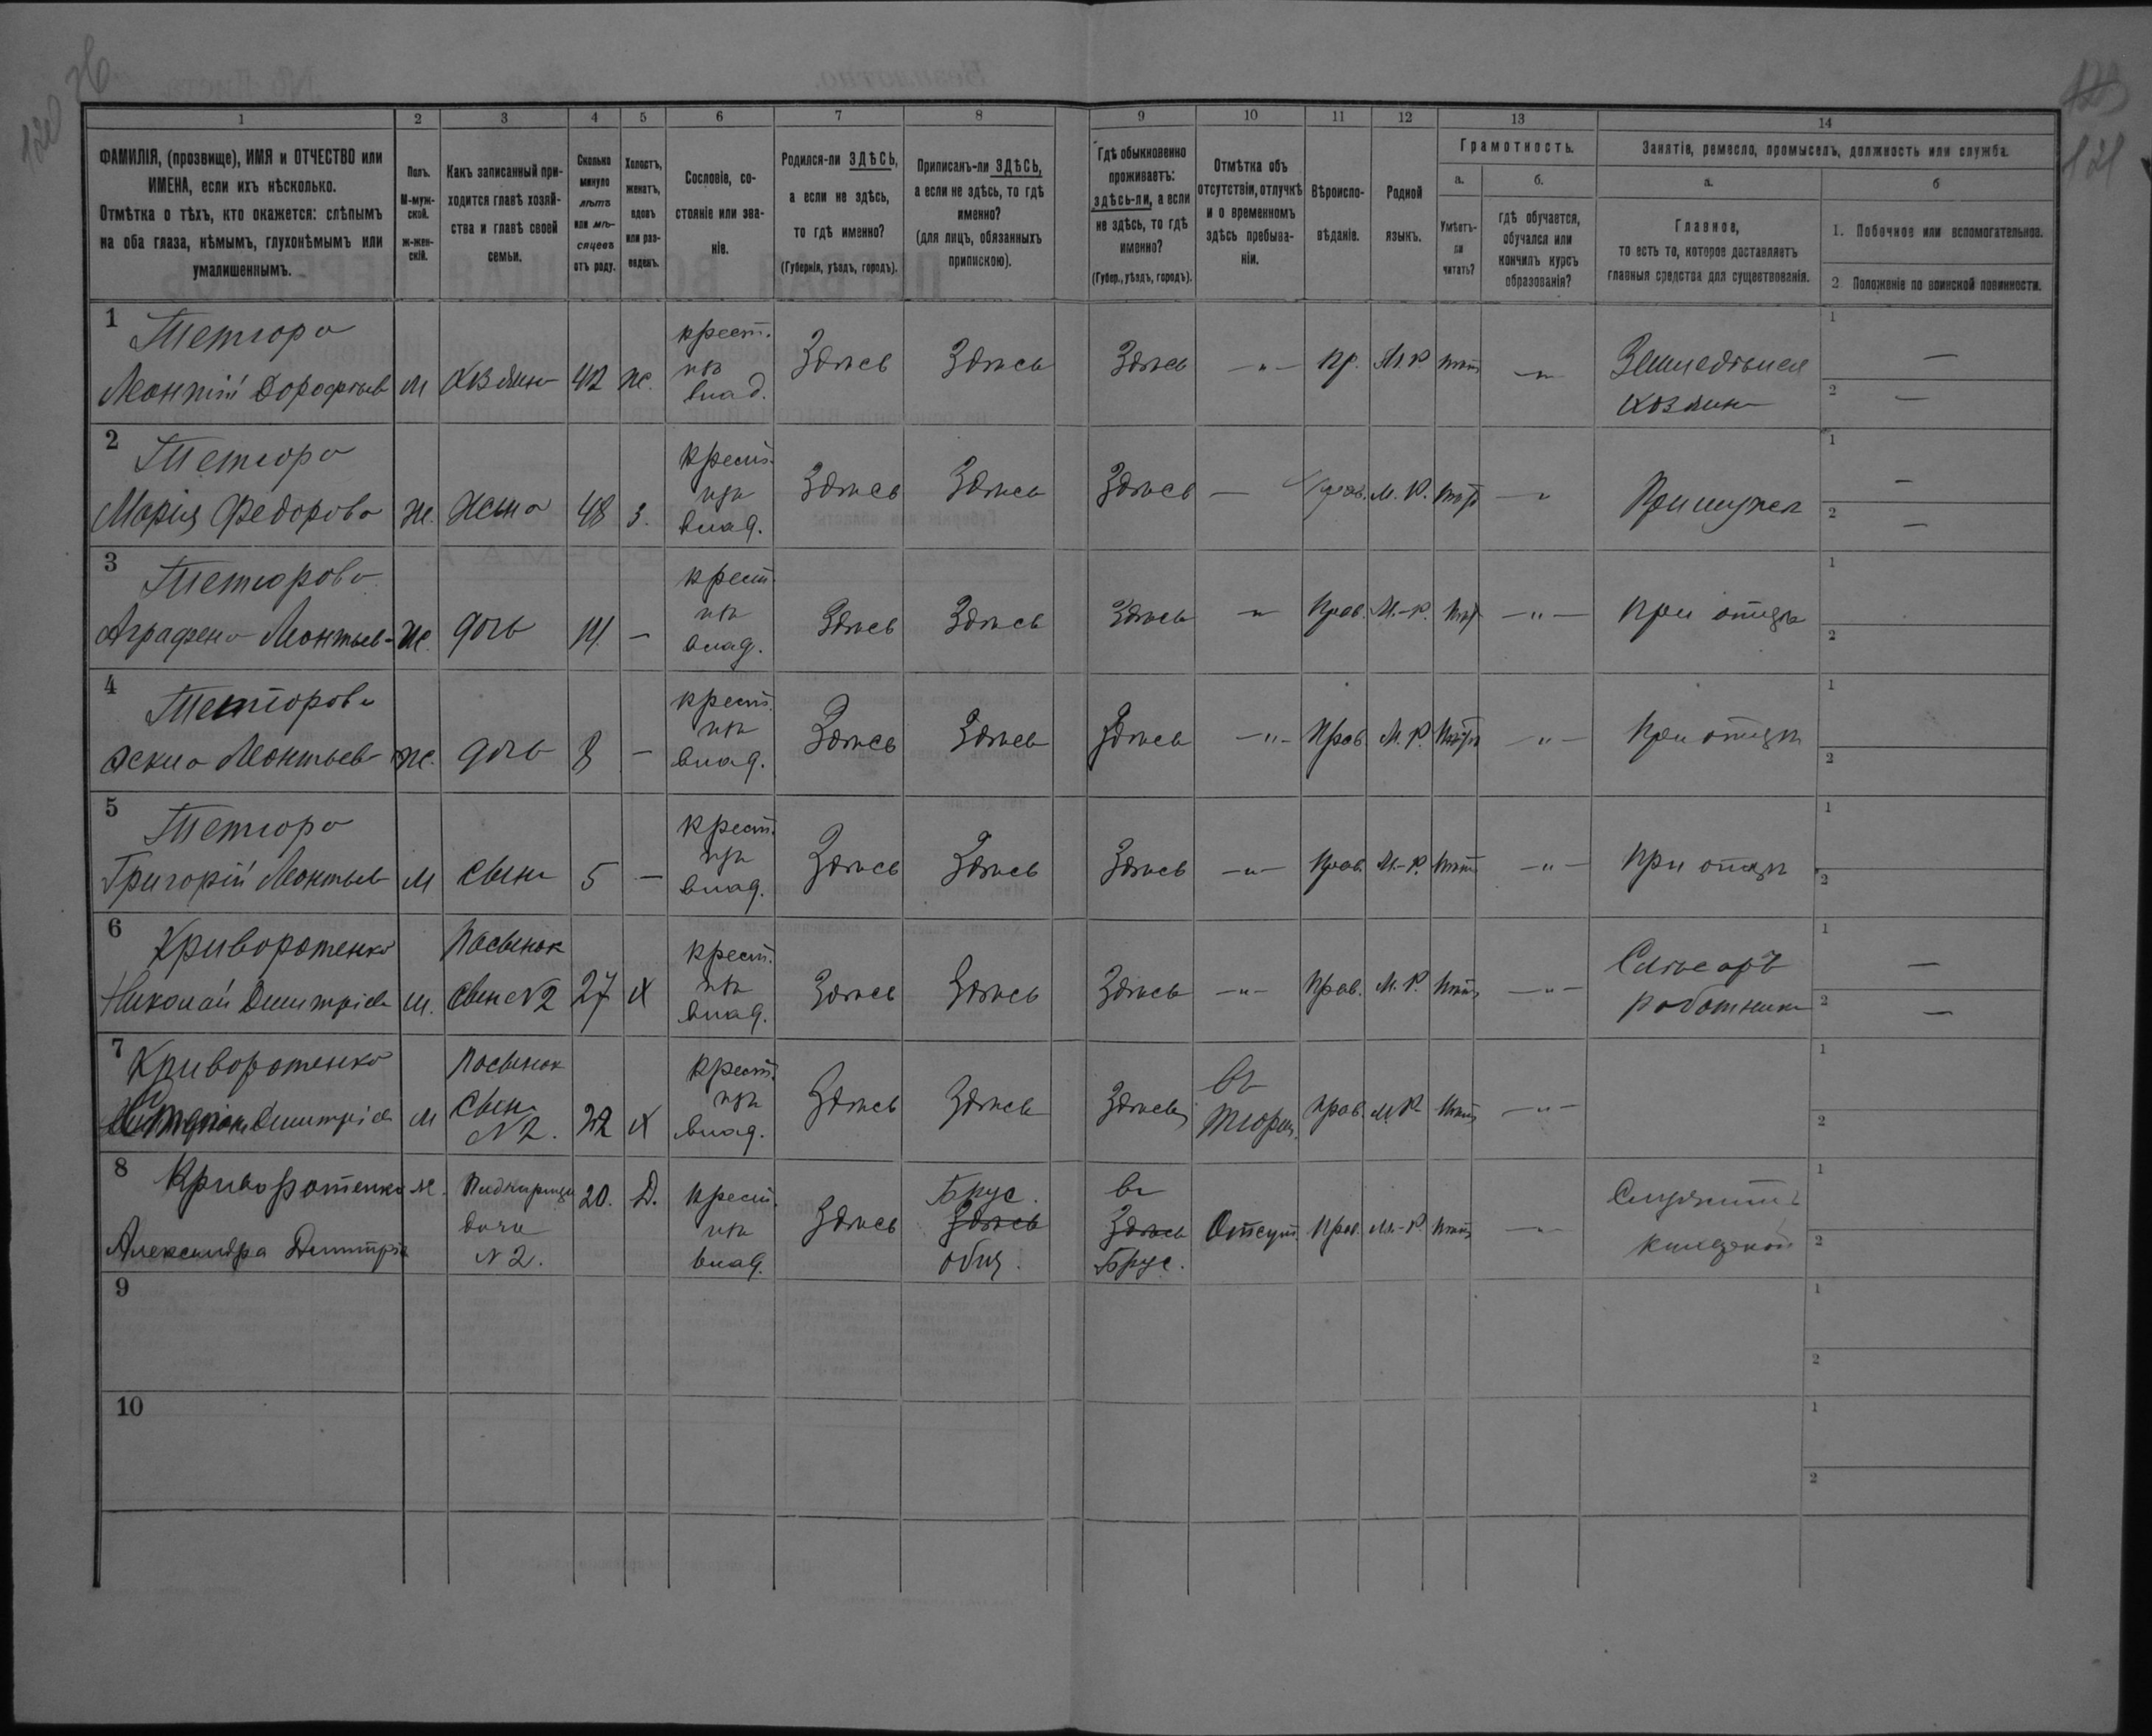 120
121
1
2
3
4
5
6
7
8
9
10
11
12
13
14
ФАМИЛІЯ, (прозвище), ИМЯ и ОТЧЕСТВО или
ИМЕНА, если ихъ нѣсколько.
Отмѣтка о тѣхъ, кто окажется: слѣпымъ
на оба глаза, нѣмымъ, глухонѣмымъ или
умалишеннымъ.
Полъ.
М-муж-
ской.
ж-жен-
скій.
Какъ записанный при-
ходится главѣ хозяй-
ства и главѣ своей
семьи.
Сколько
минуло
лѣтъ
или мѣ-
сяцевъ
отъ роду.
Холостъ,
женатъ,
вдовъ
или раз-
веденъ.
Сословіе, со-
стояніе или зва-
ніе.
Родился-ли ЗДѢСЬ,
а если не здѣсь,
то гдѣ именно?
(Губернія, уѣздъ, городъ).
Приписанъ-ли ЗДѢСЬ,
а если не здѣсь, то гдѣ
именно?
(для лицъ, обязанныхъ
припискою).
Гдѣ обыкновенно
проживаетъ:
здѣсь-ли, а если
не здѣсь, то гдѣ
именно?
(Губер., уѣздъ, городъ).
Отмѣтка объ
отсутствіи, отлучкѣ
и о временномъ
здѣсь пребыва-
ніи.
Вѣроиспо-
вѣданіе.
Родной
языкъ.
Грамотность.
а.
Умѣетъ-
ли
читать?
б.
гдѣ обучается,
обучался или
кончилъ курсъ
образованія?
Занятіе, ремесло, промыселъ, должность или служба.
а.
Главное,
то есть то, которое доставляетъ
главныя средства для существованія.
б
1. Побочное или вспомогательное.
2 Положеніе по воинской повинности.
1 Тетюра
Леонтій Дорофѣев М хозяин 42 ж. крест. изъ влад. Здѣсь Здѣсь Здѣсь —"— Пр. М.Р. нѣтъ —"— Земледѣлец хозяин 1 — 2 —
2 Тетюра
Марія Федорова Ж. жена 48 з. крест. изъ влад. Здѣсь Здѣсь Здѣсь — Прав. М.Р. нѣтъ —"— При мужѣ 1 — 2 —
3 Тетюрова
Аграфена Леонтьев Ж. дочь 14 — крест. изъ влад. Здѣсь Здѣсь Здѣсь —"— Прав. М.-Р. нѣтъ —"— При отцѣ 1 2
4 Тетюрова
Леонтьев ж. дочь 8 — крест. изъ влад. Здѣсь Здѣсь Здѣсь —"— Прав. М.Р. нѣтъ —"— При отцѣ 1 2
5 Тетюра
Григорій Леонтьев М сын 5 — крест. изъ влад. Здѣсь Здѣсь Здѣсь —"— Прав. М.-Р. нѣтъ —"— При отцѣ 1 2
6 Криворотенко
Николай Димитріев М. Пасынок сын №2 27 Х крест. изъ влад. Здѣсь Здѣсь Здѣсь —"— Прав. М.Р. нѣтъ —"— Слѣсарь работник 1 — 2 —
7 Криворотенко
Димитріев М Пасынок сын №2. 22 Х крест. изъ влад. Здѣсь Здѣсь Здѣсь въ Прав. М.Р. нѣтъ —"— 1 2
8 Криворотенко
Александра Димитрія Ж. Падчерица дочь №2. 20. Д. крест. изъ влад. Здѣсь Брус. Здѣсь общ. въ Здѣсь Брус. Отсут. Прав. М.-Р. нѣтъ —"— 1 2
9 1 2
10 1 2